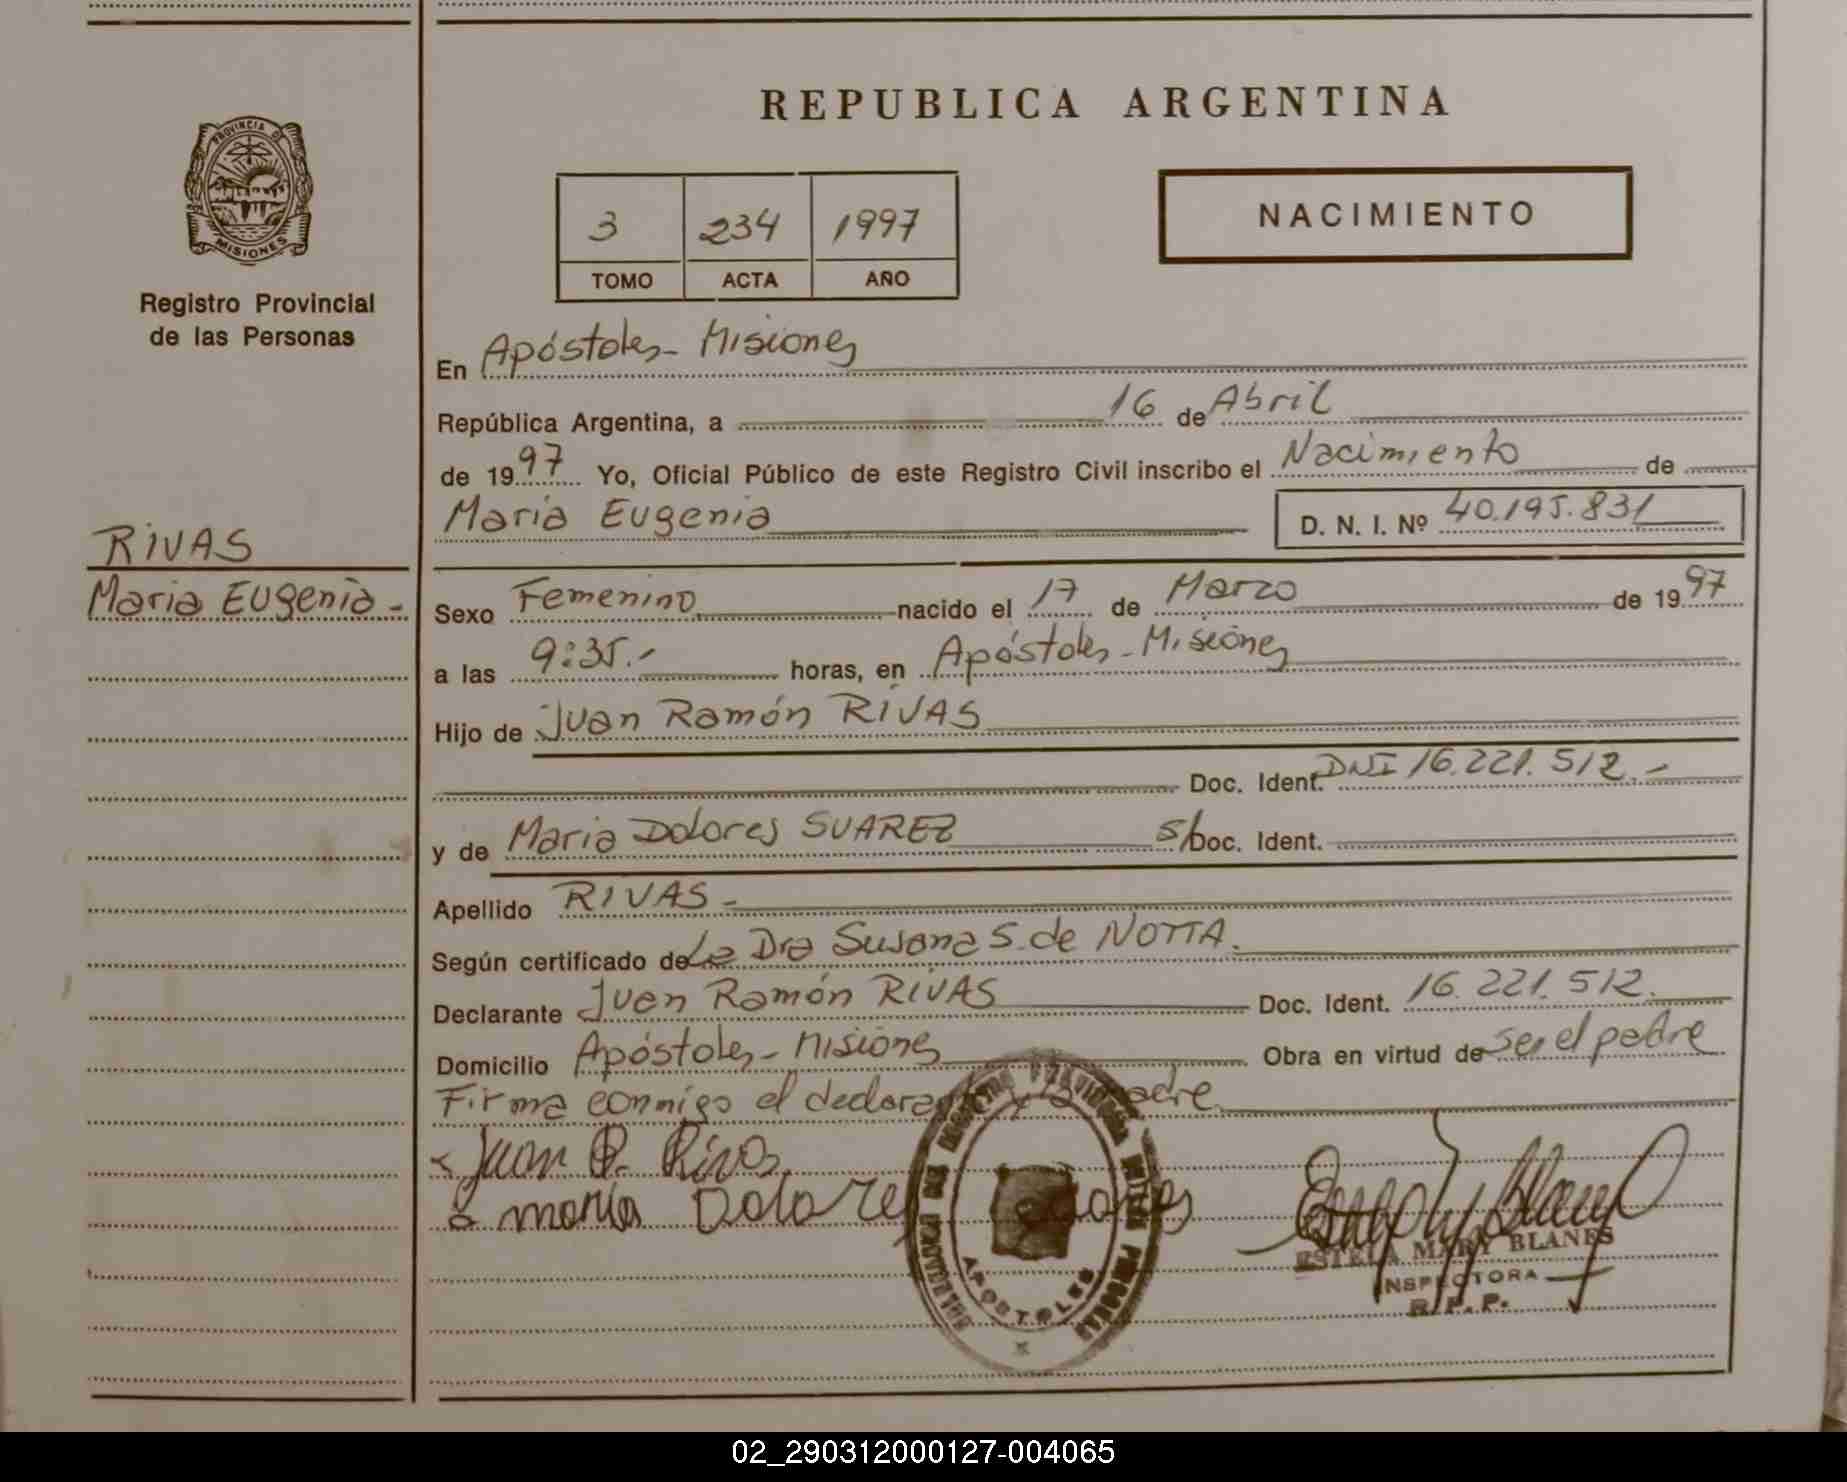 PROVINCIA DE
MISIONES
Registro Provincial
de las Personas
RIVAS
Maria Eugenia.-
REPUBLICA ARGENTINA
3 234 1997
TOMO ACTA AÑO
NACIMIENTO
En Apóstoles - Misiones
República Argentina, a 16 de Abril
de 1997 Yo, Oficial Público de este Registro Civil inscribo el Nacimiento de
Maria Eugenia D. N. I. Nº 40.195.831
Sexo Femenino nacido el 17 de Marzo de 1997
a las 9:35.- horas, en Apóstoles - Misiones
Hijo de Juan Ramón RIVAS
Doc. Ident. DNI 16.221.512.-
y de Maria Dolores SUAREZ S/Doc. Ident.
Apellido RIVAS -
Según certificado de La Dra Susana S. de NOTTA.
Declarante Juan Ramón RIVAS Doc. Ident. 16.221.512.
Domicilio Apóstoles - Misiones Obra en virtud de ser el padre
Firma conmigo el declarante y la madre.
Juan R. Rivas
maria Dolores
APOSTOLES
ESTELA MARY BLANES
INSPECTORA
R. P. P.
02_290312000127-004065